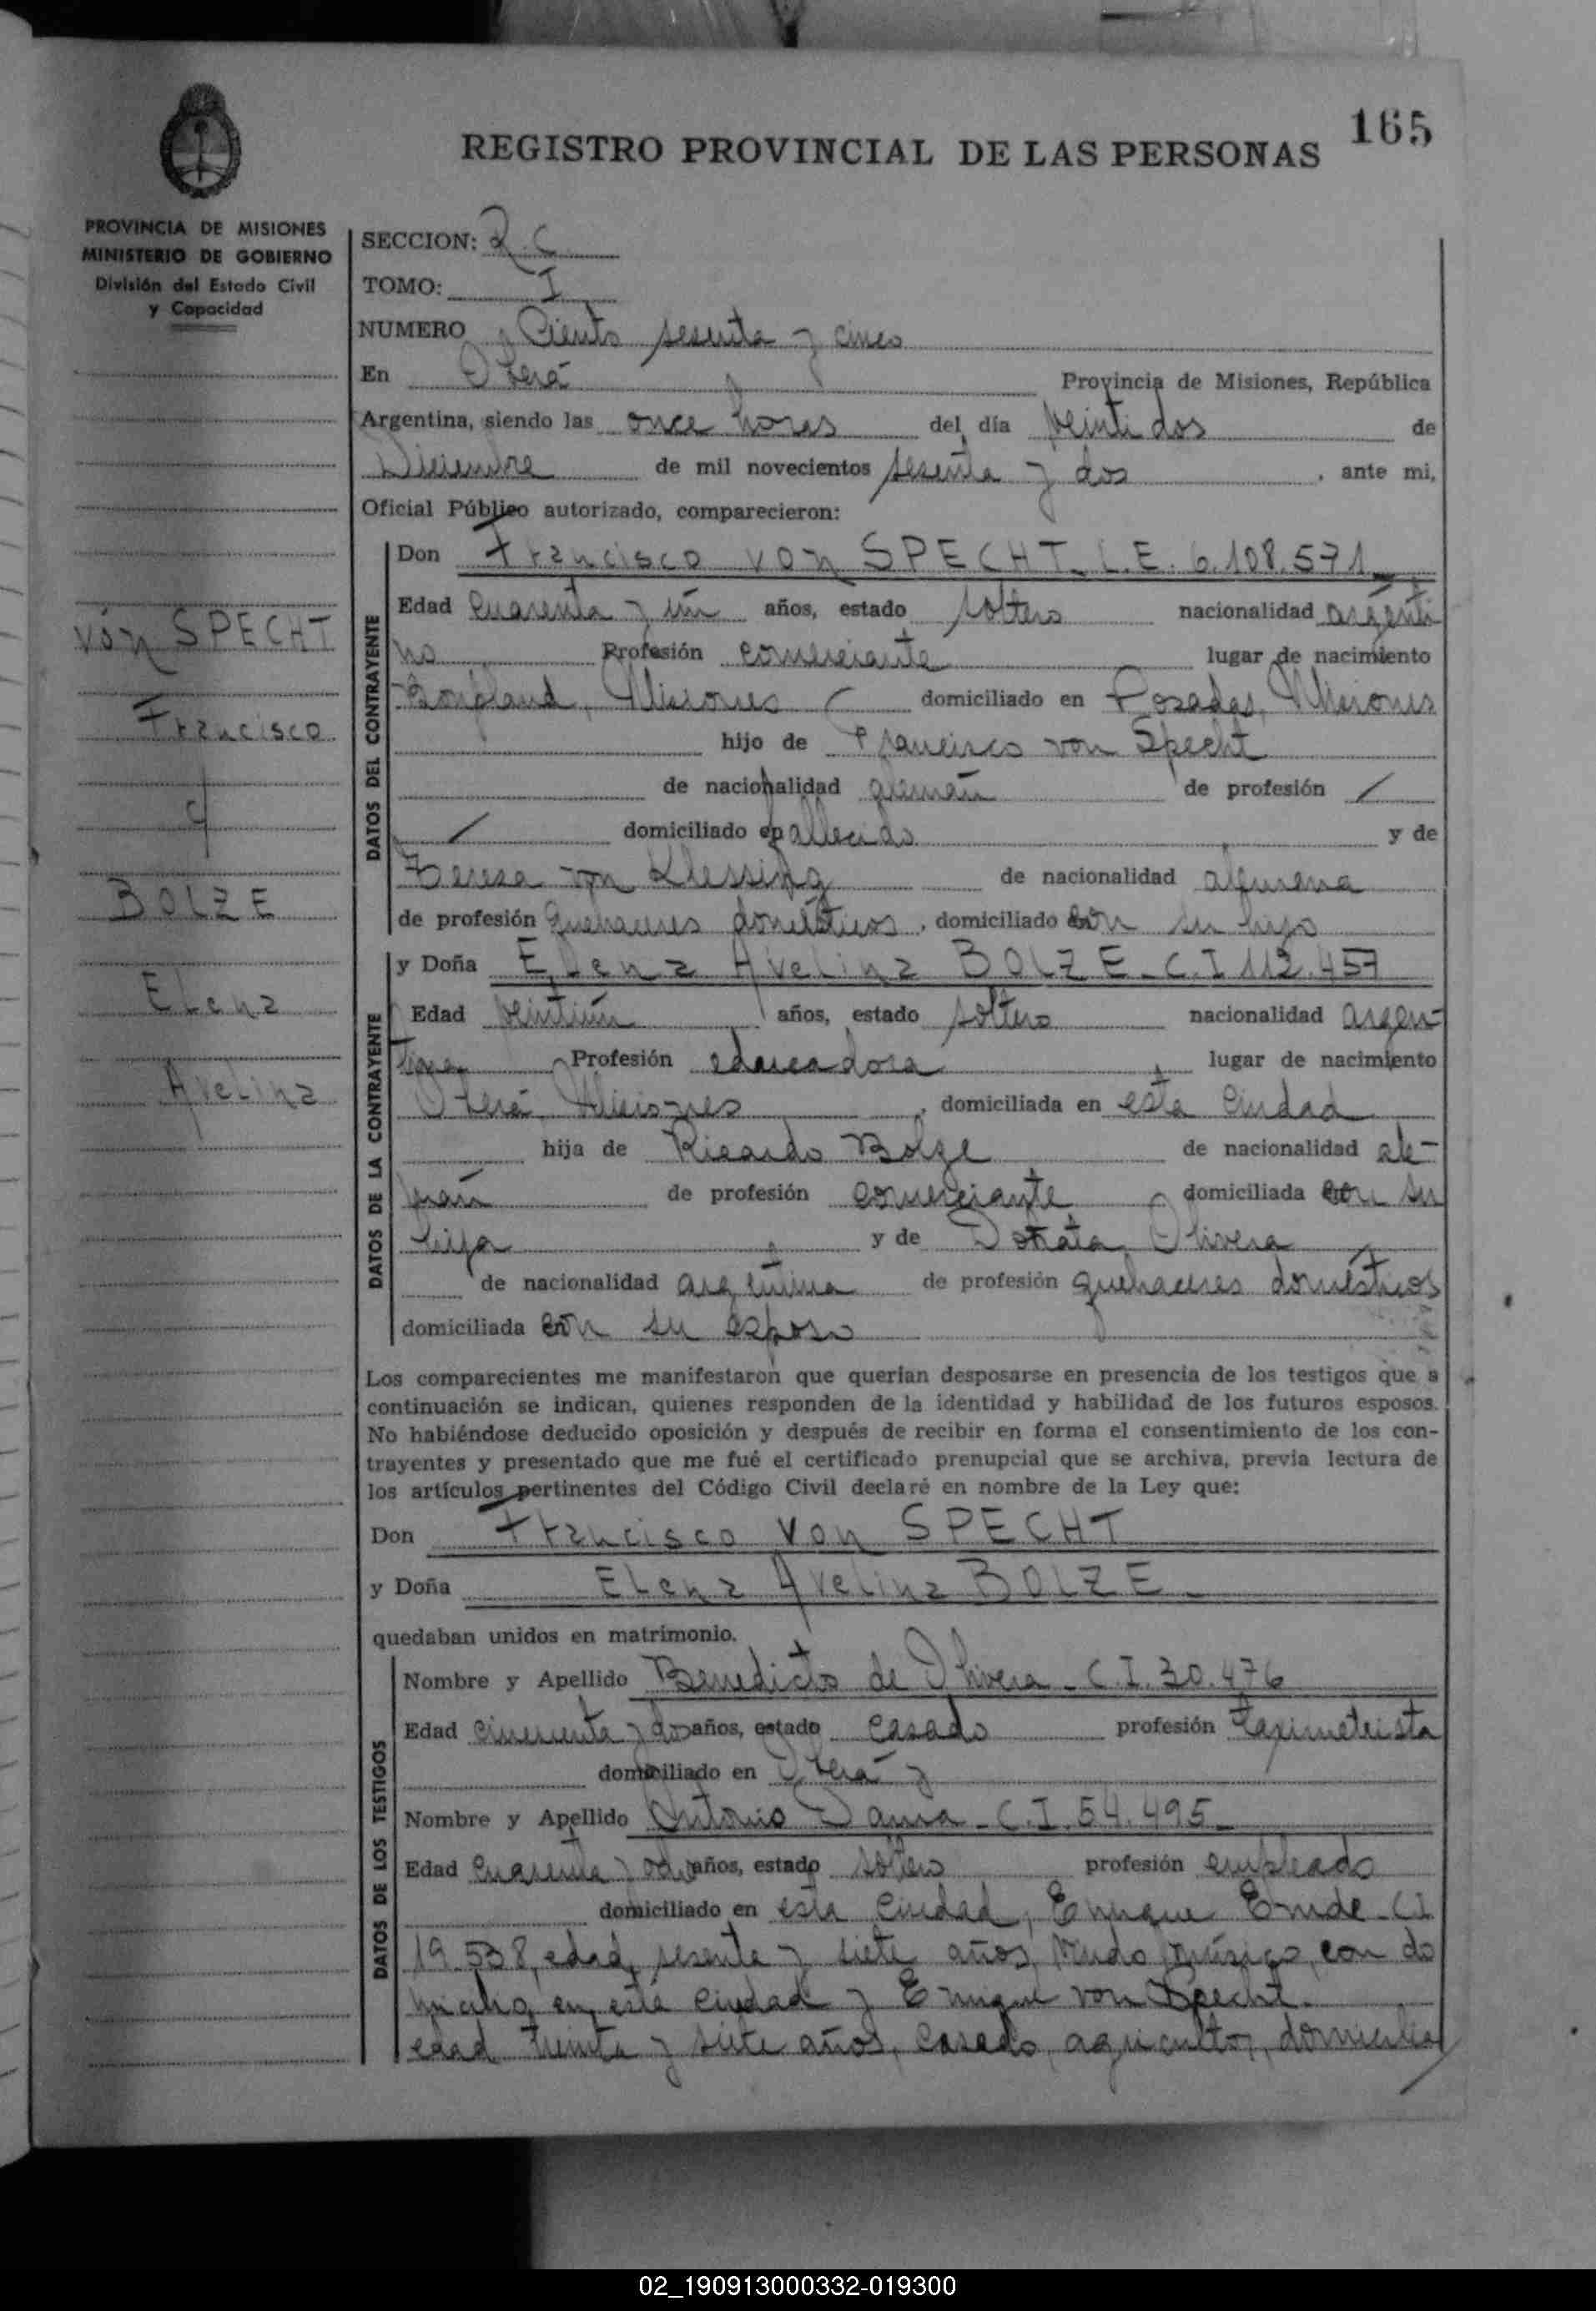 165
REGISTRO PROVINCIAL DE LAS PERSONAS
PROVINCIA DE MISIONES
MINISTERIO DE GOBIERNO
División del Estado Civil
y Capacidad
von SPECHT
Francisco
c/
BOLZE
Elena
Avelina
SECCION: R.C.
TOMO: I
NUMERO Ciento sesenta y cinco
En Oberá Provincia de Misiones, República
Argentina, siendo las once horas del día veintidos de
Diciembre de mil novecientos sesenta y dos, ante mi,
Oficial Público autorizado, comparecieron:
DATOS DEL CONTRAYENTE
Don Francisco von SPECHT. L.E. 6.108.571
Edad cuarenta y un años, estado soltero nacionalidad argenti
no Profesión comerciante lugar de nacimiento
Bonpland, Misiones domiciliado en Posadas, Misiones
hijo de Francisco von Specht
de nacionalidad alemán de profesión /
/ domiciliado en fallecido y de
Teresa von Klessing de nacionalidad alemana
de profesión quehaceres domésticos, domiciliado con su hijo
DATOS DE LA CONTRAYENTE
y Doña Elena Avelina BOLZE - C.I 112.457
Edad veintiún años, estado soltero nacionalidad argen-
tina Profesión educadora lugar de nacimiento
Oberá, Misiones, domiciliada en esta ciudad
hija de Ricardo Bolze de nacionalidad ale-
mán de profesión comerciante domiciliada con su
hija y de Donata Olivera
de nacionalidad argentina de profesión quehaceres domésticos
domiciliada con su esposo
Los comparecientes me manifestaron que querían desposarse en presencia de los testigos que a
continuación se indican, quienes responden de la identidad y habilidad de los futuros esposos.
No habiéndose deducido oposición y después de recibir en forma el consentimiento de los con-
trayentes y presentado que me fué el certificado prenupcial que se archiva, previa lectura de
los artículos pertinentes del Código Civil declaré en nombre de la Ley que:
Don Francisco von SPECHT
y Doña Elena Avelina BOLZE
quedaban unidos en matrimonio.
DATOS DE LOS TESTIGOS
Nombre y Apellido Benedicto de Olivera - C.I. 30.476
Edad cincuenta y dos años, estado casado profesión taximetrista
domiciliado en Oberá y
Nombre y Apellido Antonio C.I. 54.495
Edad cuarenta y ocho años, estado soltero profesión empleado
domiciliado en esta ciudad, Enrique Emde - C.I
19.538, edad, sesenta y siete años, viudo, músico, con do
micilio en esta ciudad y Enrique von Specht.
edad treinta y siete años, casado, agricultor, domicilia
02_190913000332-019300